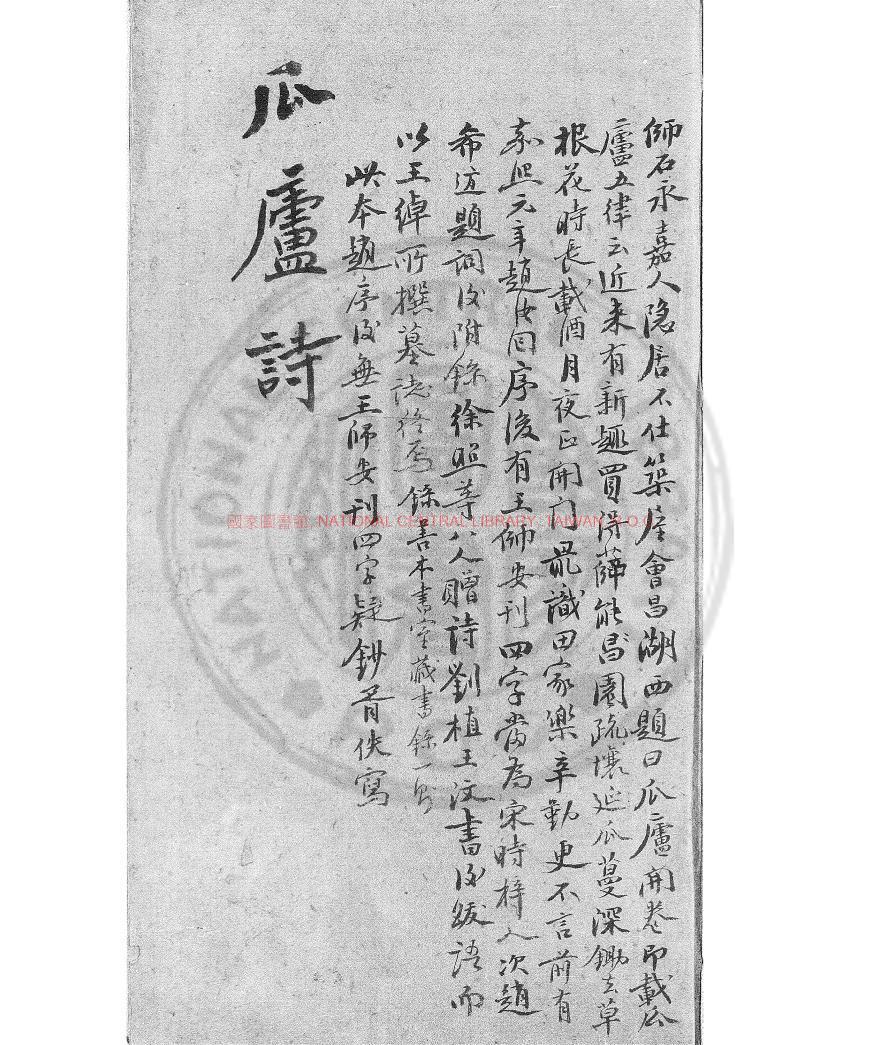 師石永嘉人隐居不仕築屋會昌湖西題曰瓜廬開卷即載瓜
廬五律云近来有新趣買得薜能園疏壤延瓜蔓深鋤去草
根花時長載酒月夜正開门最識田家樂辛勤更不言前有
嘉熙元年趙汝回序後有王師安刊四字當為宋時梓人次趙
希迈題詞後附錄徐照等八人贈詩劉植王汶書後跋語而
以王綽所撰墓誌終焉錄善本書室藏書錄一則
此本趙序後無王師安刊四字疑鈔胥佚寫
瓜廬詩
國家圖書館, NATIONAL CENTRAL LIBRARY, TAIWAN, R.O.C.